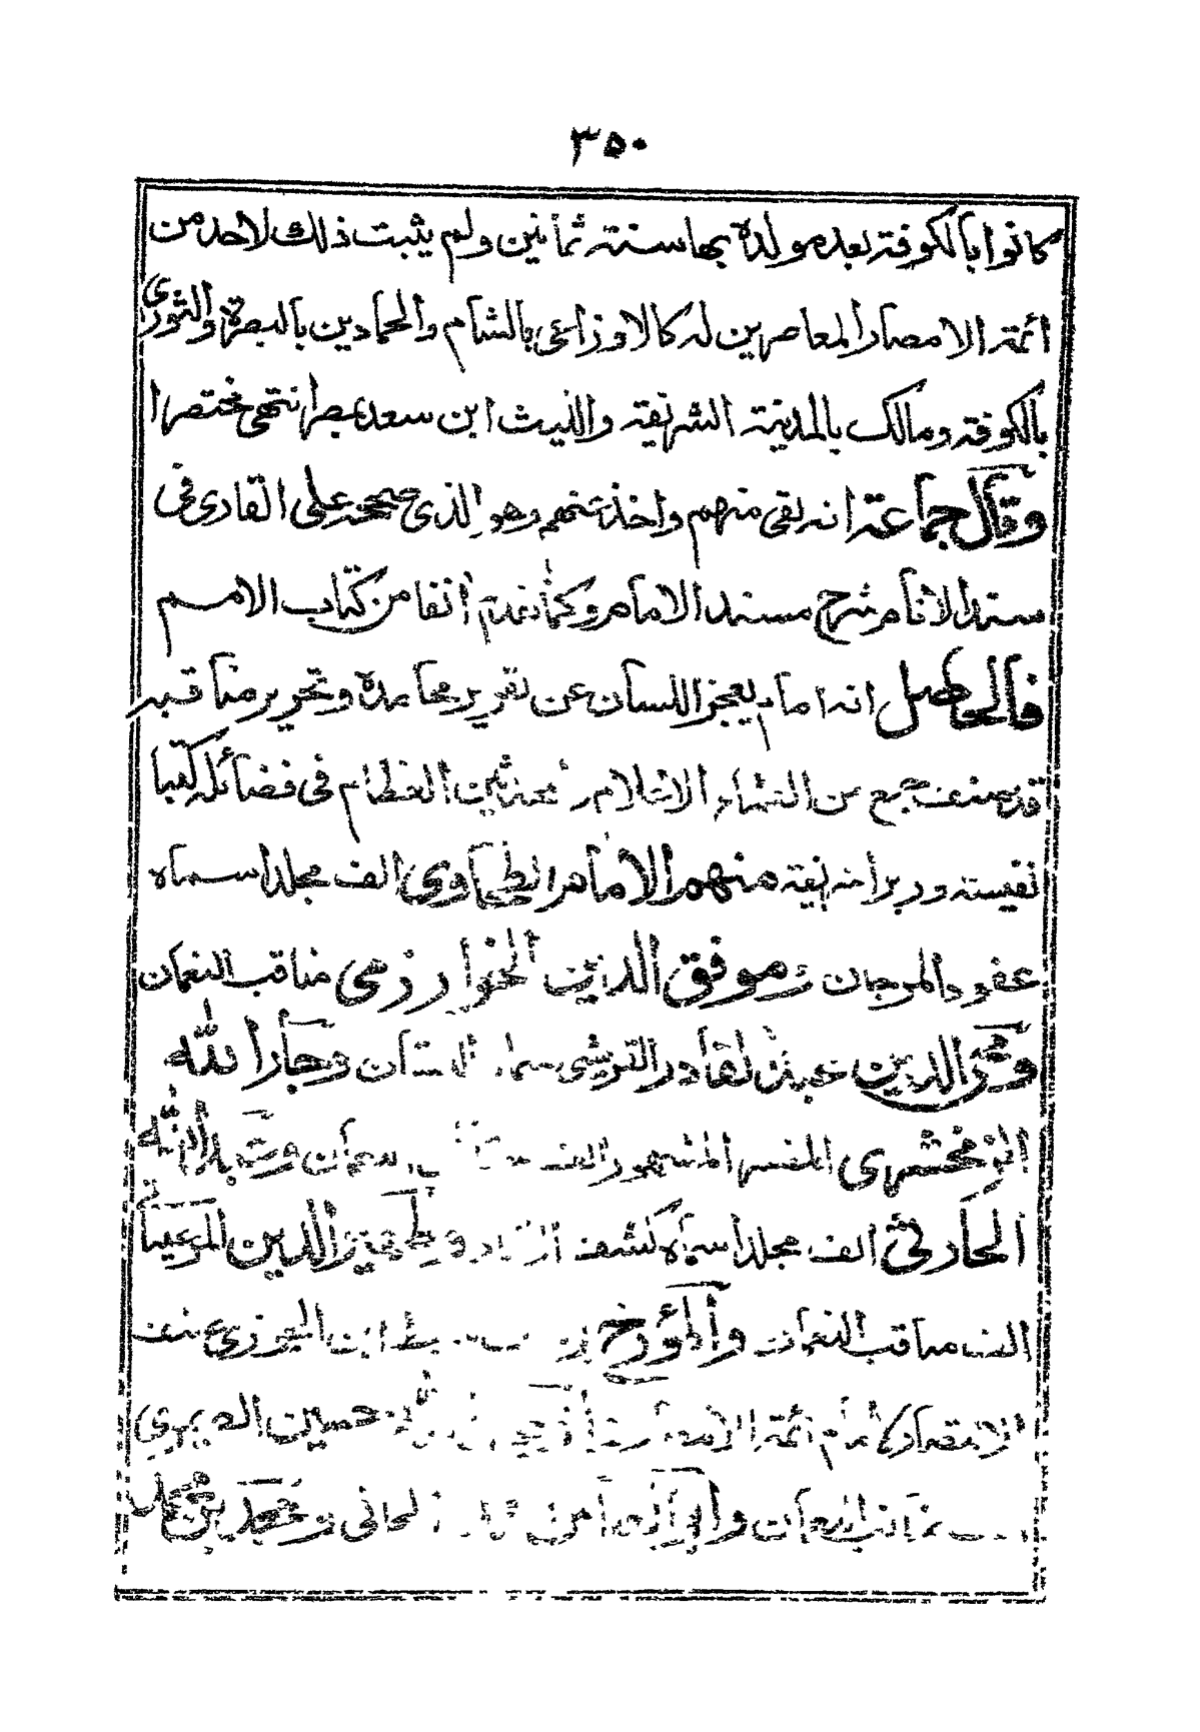 ٣٥٠
كانوا بالكوفة بعد مولده بها سنة ثمانين ولم يثبت ذلك لاحد من
ائمة الامصار المعاصرين له كالاوزاعى بالشام والحمادين بالبصرة والثورى
بالكوفة ومالك بالمدينة الشريفة والليث ابن سعد بمصر انتهى مختصرا
وقال جماعة انه لقى منهم واخذ عنهم وهو الذى صححه على القارى فى
سند الانام شرح مسند الامام وكما تقدم انفا من كتاب الامم
فالحاصل انه امام يعجز اللسان عن تقرير محامده وتحرير مناقبه
قد صنف جمع من العلماء الاعلام العظام فى فضائله كتبا
نفيسة وزبرا انيقة منهم الامام الطحاوى الف مجلدا سماه
عقود المرجان وموفق الدين الخوارزمى مناقب النعمان
ومحى الدين عبد القادر القرشى سماه البستان وجار الله
الزمخشرى المفسر المشهور الف
الحارثى الف مجلدا سماه كشف وظهير الدين المرغينانى
الف مناقب النعمان والمؤرخ سبط ابن الجوزى صنف
الانتصار لامام ائمة الامصار حسين الصيمرى
مناقب النعمان